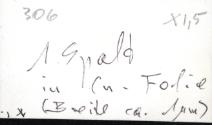 306 X1,5
1. Spalt
in Cu-Folie
(Breite ca. 1µm)